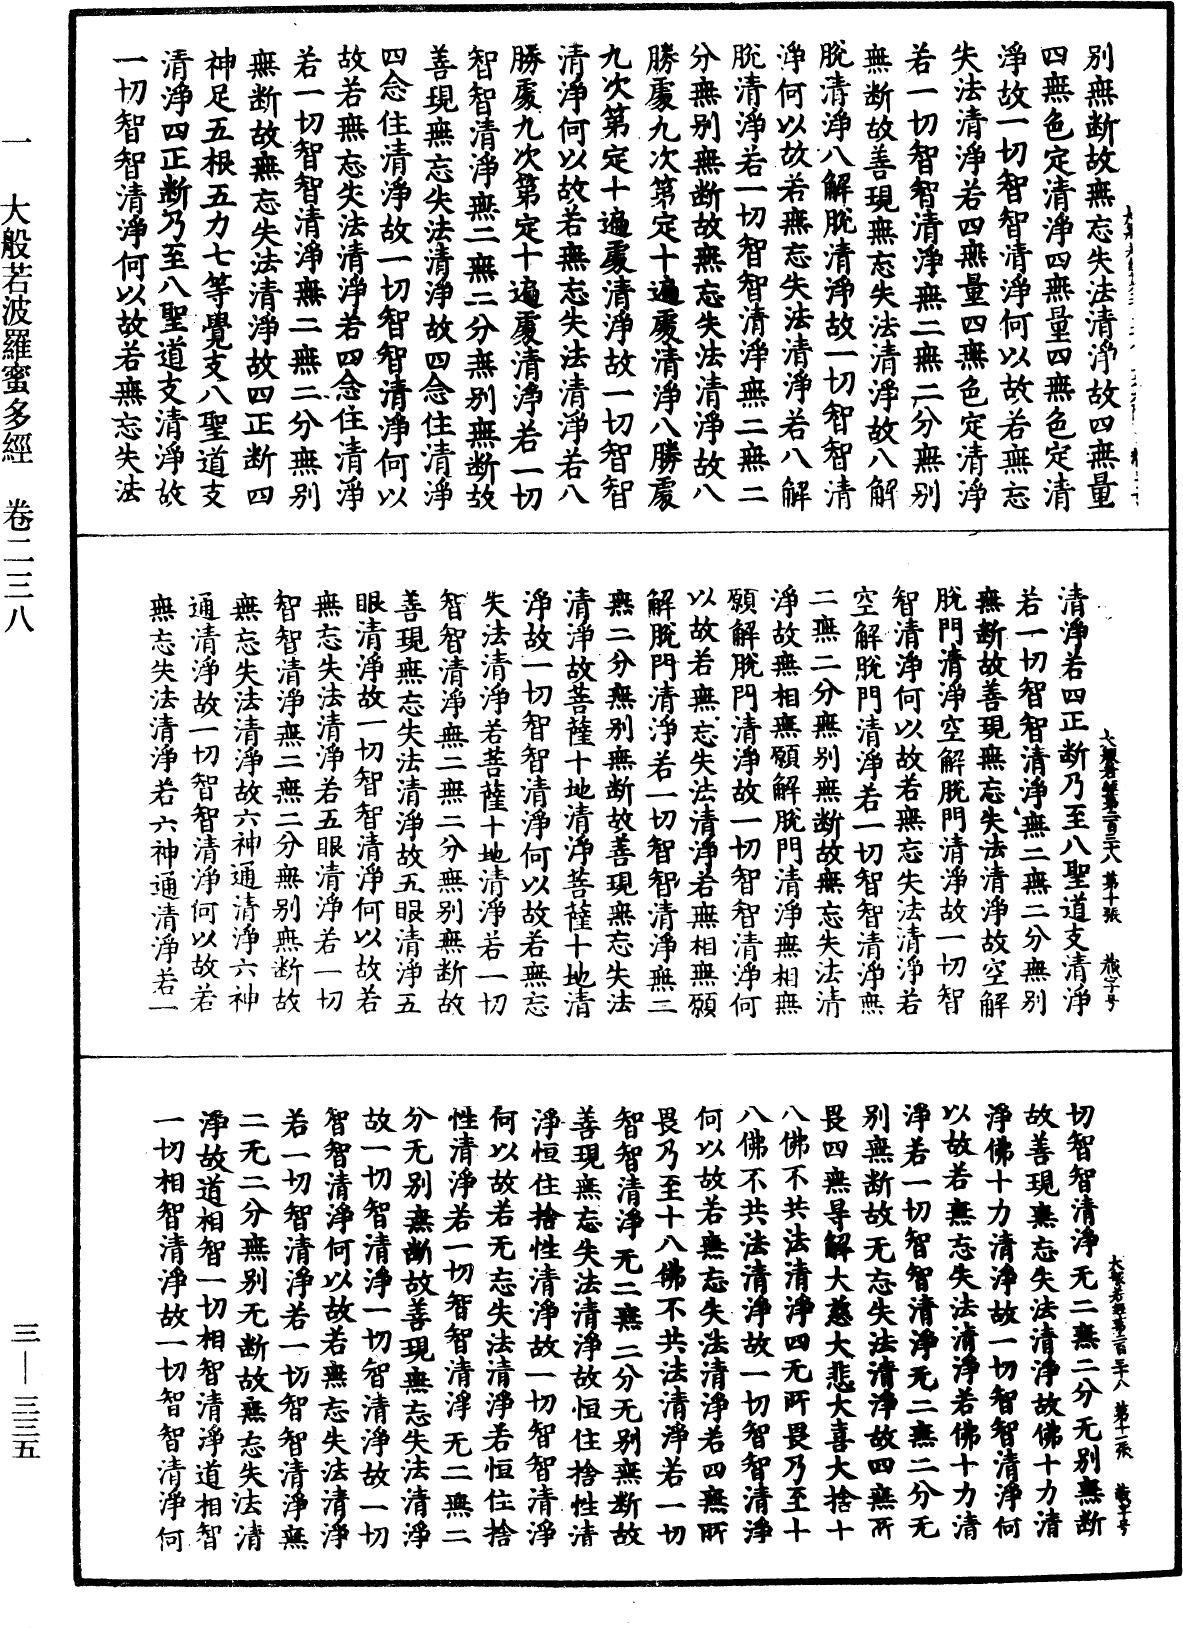 別無断故無忘失法清淨故四無量
四無色定清淨四無量四無色定清
淨故一切智智清淨何以故若無忘
失法清淨若四無量四無色定清淨
若一切智智清淨無二無二分無別
無断故善現無忘失法清淨故八解
脫清淨八解脫清淨故一切智智清
淨何以故若無忘失法清淨若八解
脫清淨若一切智智清淨無二無二
分無別無断故無忘失法清淨故八
勝處九次第定十遍處清淨八勝處
九次第定十遍處清淨故一切智智
清淨何以故若無忘失法清淨若八
勝處九次第定十遍處清淨若一切
智智清淨無二無二分無別無断故
善現無忘失法清淨故四念住清淨
四念住清淨故一切智智清淨何以
故若無忘失法清淨若四念住清淨
若一切智智清淨無二無二分無別
無断故無忘失法清淨故四正断四
神足五根五力七等覺支八聖道支
清淨四正断乃至八聖道支清淨故
一切智智清淨何以故若無忘失法
大般若經第二百三十八 第十張 薇字号
清淨若四正断乃至八聖道支清淨
若一切智智清淨無二無二分無別
無断故善現無忘失法清淨故空解
脫門清淨空解脫門清淨故一切智
智清淨何以故若無忘失法清淨若
空解脫門清淨若一切智智清淨無
二無二分無別無断故無忘失法清
淨故無相無願解脫門清淨無相無
願解脫門清淨故一切智智清淨何
以故若無忘失法清淨若無相無願
解脫門清淨若一切智智清淨無二
無二分無別無断故善現無忘失法
清淨故菩薩十地清淨菩薩十地清
淨故一切智智清淨何以故若無忘
失法清淨若菩薩十地清淨若一切
智智清淨無二無二分無別無断故
善現無忘失法清淨故五眼清淨五
眼清淨故一切智智清淨何以故若
無忘失法清淨若五眼清淨若一切
智智清淨無二無二分無別無断故
無忘失法清淨故六神通清淨六神
通清淨故一切智智清淨何以故若
無忘失法清淨若六神通清淨若一
大般若經第二百三十八 第十一張
切智智清淨无二無二分无別無断
故善現無忘失法清淨故佛十力清
淨佛十力清淨故一切智智清淨何
以故若無忘失法清淨若佛十力清
淨若一切智智清淨无二無二分无
別無断故无忘失法清淨故四無所
畏四無导解大慈大悲大喜大捨十
八佛不共法清淨四无所畏乃至十
八佛不共法清淨故一切智智清淨
何以故若無忘失法清淨若四無所
畏乃至十八佛不共法清淨若一切
智智清淨无二無二分无別無断故
善現無忘失法清淨故恒住捨性清
淨恒住捨性清淨故一切智智清淨
何以故若无忘失法清淨若恒住捨
性清淨若一切智智清淨无二無二
分无別無断故善現無忘失法清淨
故一切智清淨一切智清淨故一切
智智清淨何以故若無忘失法清淨
若一切智清淨若一切智智清淨無
二无二分無別无断故無忘失法清
淨故道相智一切相智清淨道相智
一切相智清淨故一切智智清淨何
一 大般若波羅蜜多經 卷二三八
三—三三五